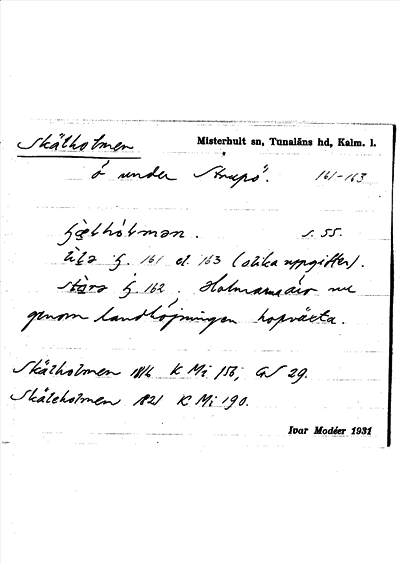 Skälholmen
Misterhult sn, Tunaläns hd, Kalm. l.
ö under Strupö. 161-163
s. 55.
161 el. 163 (olika uppgifter).
162. Holmarna äro nu
genom landhöjningen hopväxta.
Skälholmen 1816 K Mi 156, GS 29.
Skäleholmen 1821 K Mi 190.
Ivar Modéer 1931